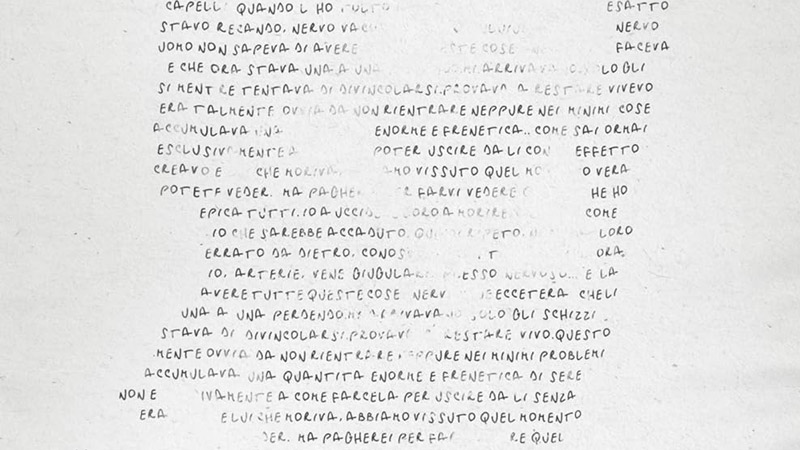 CAPELLI QUANDO L HO ESATTO
STAVO RECANDO. NERVO NERVO
UOMO NON SAPEVA DI AVERE ESTE COSE FACEVA
E CHE ORA STAVA UNA A UNA MI ARRIVAVANO SOLO GLI
SI MENTRE TENTAVA DI DIVINCOLARSI. PROVAVO A RESTARE VIVEVO
ERA TALMENTE OVVIA DA NON RIENTRARE NEPPURE NEI MINIMI COSE
ACCUMULAVA UNA ENORME E FRENETICA.. COME SAI ORMAI
ESCLUSIVAMENTE A POTER USCIRE DA LI CON EFFETTO
CREAVO E CHE MORIVA. AMO VISSUTO QUEL MO O VERA
POTETE VEDER. MA PAGHE R FARVI VEDERE HE HO
EPICA TUTTI. IO A UCCID LORO A MORIRE COME
IO CHE SAREBBE ACCADUTO. LORO
ERRATO DA DIETRO. CONOS T ORA.
IO. ARTERIE. VENE GIUGULAR ESSO NERVOSO... E LA
AVERE TUTTE QUESTE COSE NERV E ECCETERA CHE LI
UNA A UNA PERDENDO. MI ARRIVAVANO SOLO GLI SCHIZZI
STAVA DI DIVINCOLARSI. PROVAVO RESTARE VIVO. QUESTO
MENTE OVVIA DA NON RIENTRARE NEPPURE NEI MINIMI PROBLEMI
ACCUMULAVA UNA QUANTITA ENORME E FRENETICA DI SERE
NON E IVAMENTE A COME FARCELA PER USCIRE DA LI SENZA
ERA E LUI CHE MORIVA. ABBIAMO VISSUTO QUEL MOMENTO
DER. MA PAGHEREI PER FAR RE QUEL